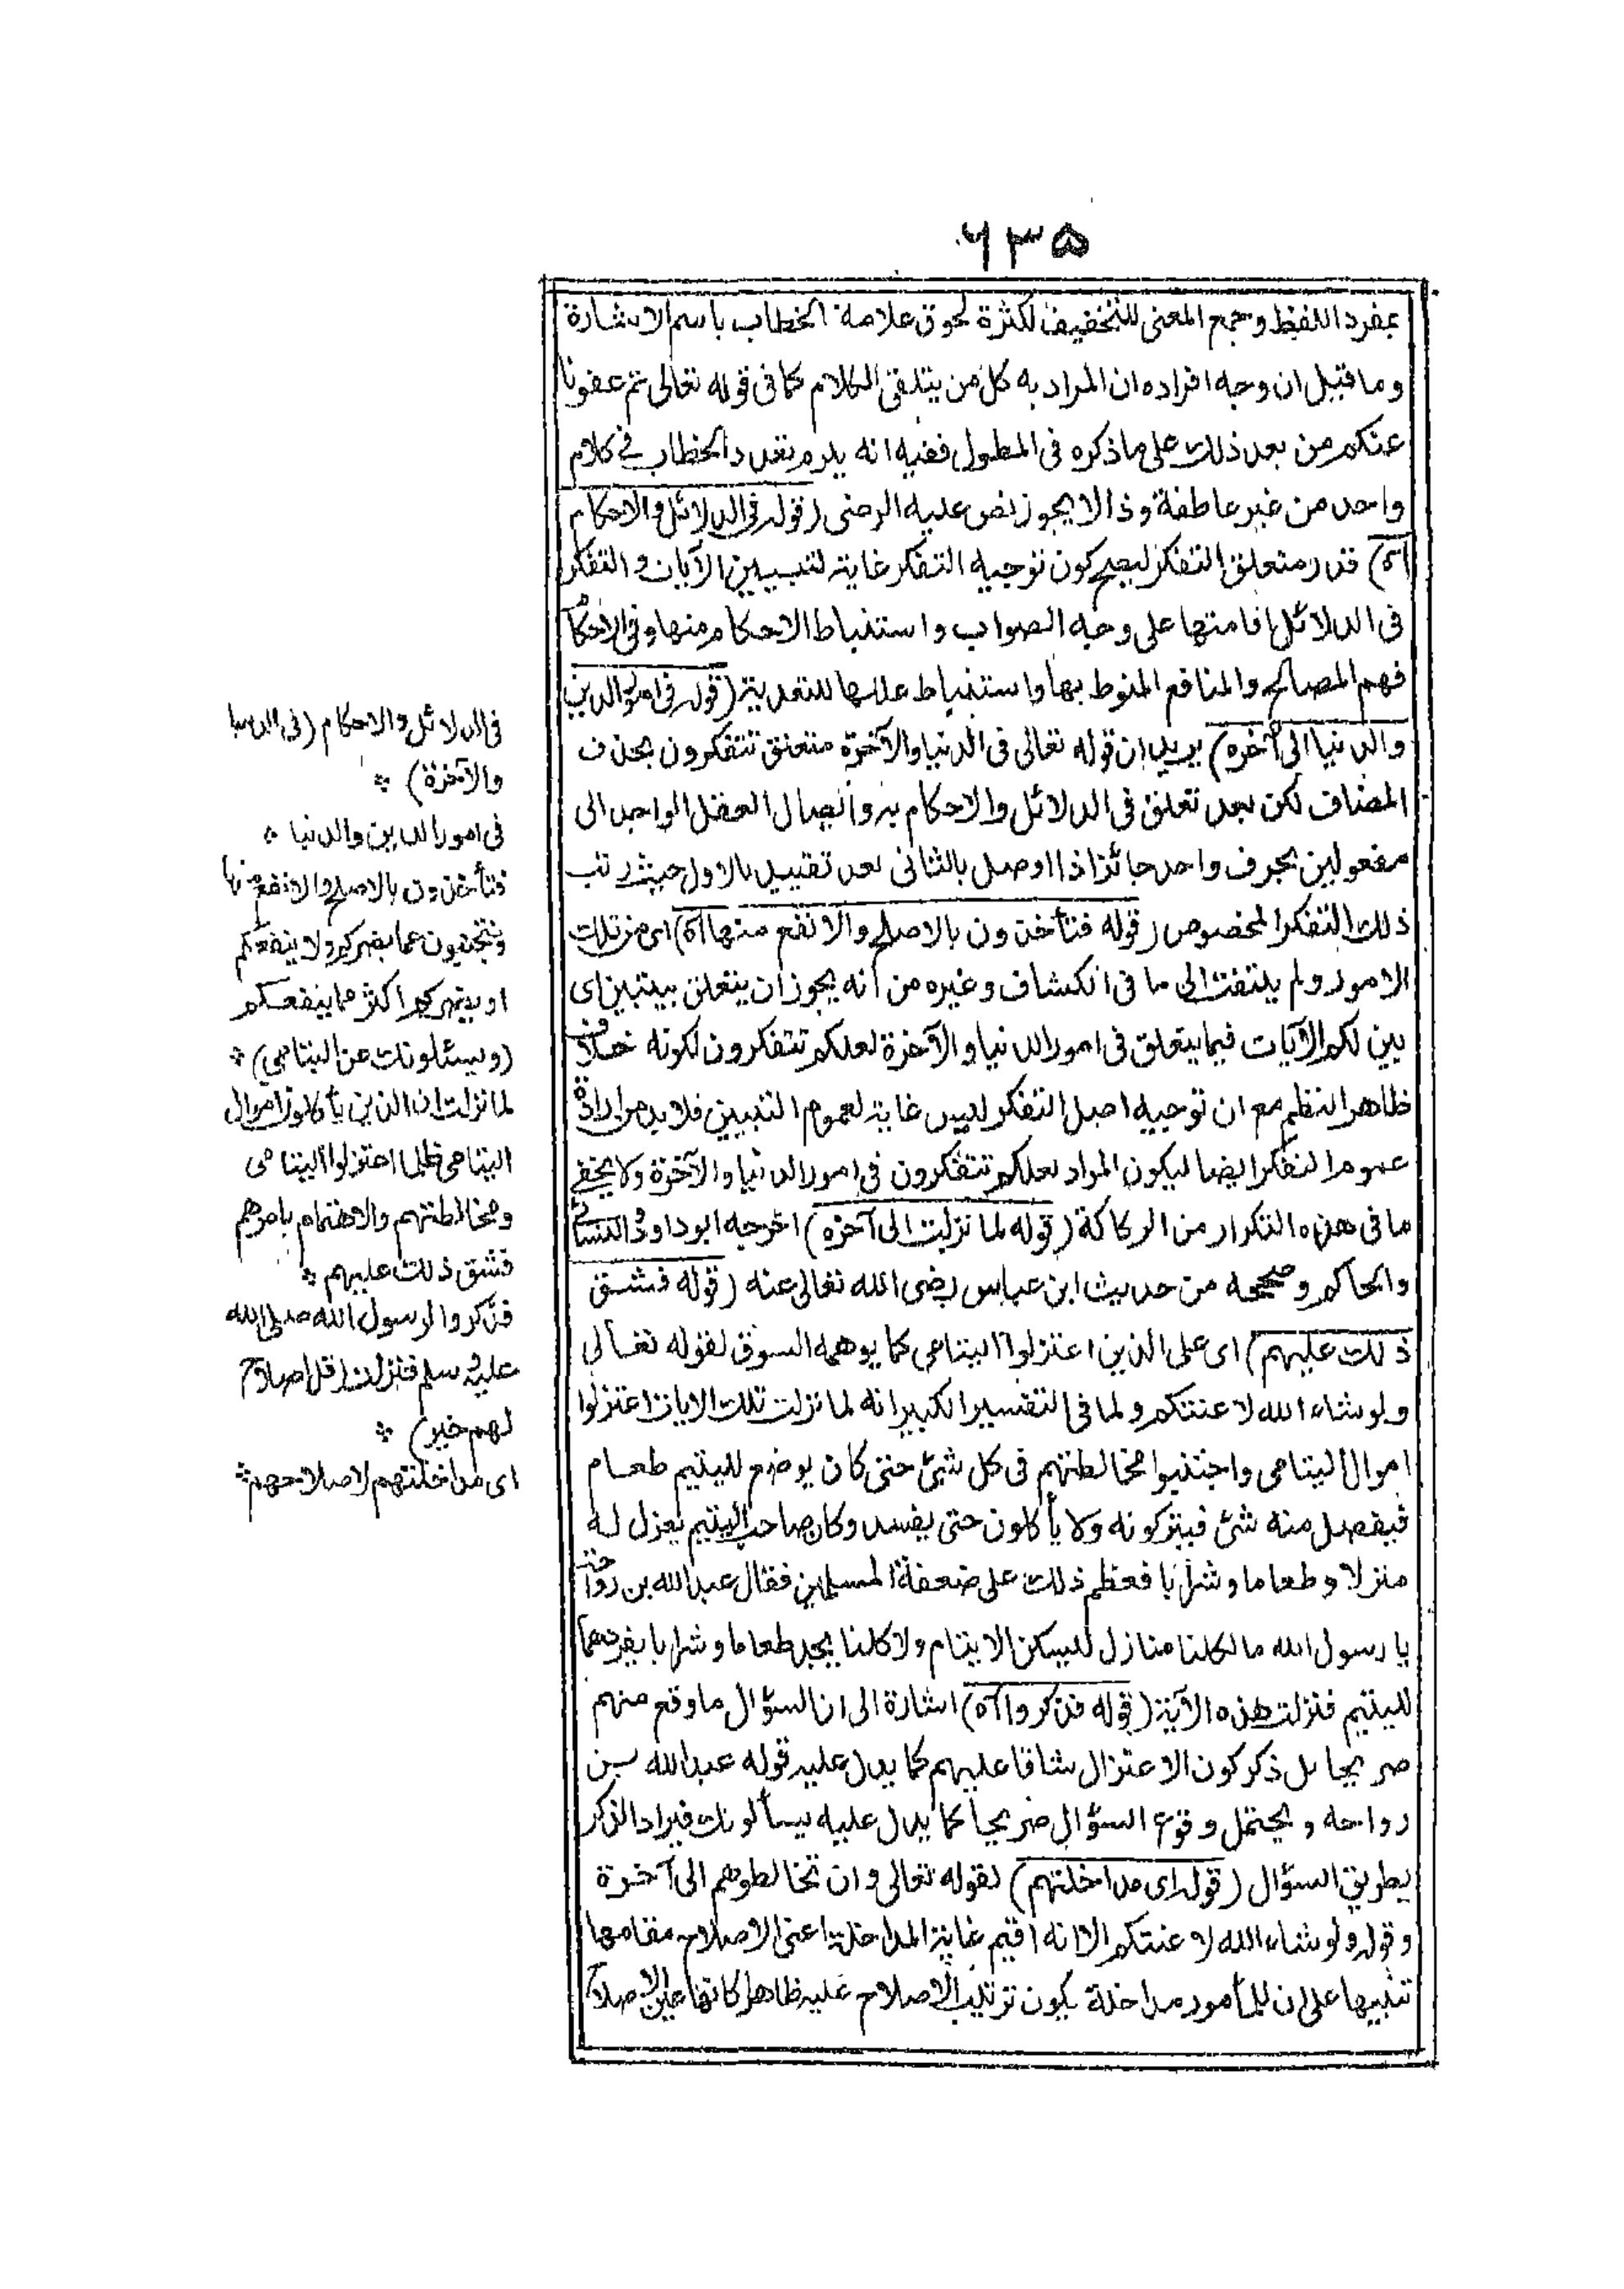 ۶۳۵
بمفرد اللفظ وجمع المعنى للتخفيف لكثرة لحوق علامة الخطاب باسم الاشارة
وما قيل ان وجه افراده ان المراد به كل من يتلقى الكلام كما فى قوله تعالى ثم عفونا
عنكم من بعد ذلك على ما ذكره فى المطول ففيه انه يلزم تعدد الخطاب فى كلام
واحد من غير عاطفة وذا لا يجوز نص عليه الرضى (قوله فى الدلائل والاحكام
آه) قدر متعلق التفكر ليصح كون توجيه التفكر غاية لتبيين الآيات والتفكر
فى الدلائل اقامتها على وجه الصواب واستنباط الاحكام منها وفى الاحكام
فهم المصالح والمنافع المنوط بها واستنباط عللها للتعدية (قوله فى امور الدين
والدنيا الى آخره) يريد ان قوله تعالى فى الدنيا والآخرة متعلق تتفكرون بحذف
المضاف لكن بعد تعلق فى الدلائل والاحكام به واتصال الفعل الواحد الى
مفعولين بحرف واحد جائز اذا اوصل بالثانى بعد تقييد بالاول حيث رتب
ذلك التفكر المخصوص (قوله فتأخذون بالاصلح والانفع منها آه) اى من تلك
الامور ولم يلتفت الى ما فى الكشاف وغيره من انه يجوز ان يتعلق بيبين اى
يبين لكم الآيات فيما يتعلق فى امور الدنيا والآخرة لعلكم تتفكرون لكونه خلاف
ظاهر النظم مع ان توجيه اصل التفكر ليس غاية لعموم التبيين فلا بد من ارادة
عموم التفكر ايضا ليكون المراد لعلكم تتفكرون فى امور الدنيا والآخرة ولا يخفى
ما فى هذه التكرار من الركاكة (قوله لما نزلت الى آخره) اخرجه ابو داود والنسائى
والحاكم وصححه من حديث ابن عباس رضى الله تعالى عنه (قوله فشق
ذلك عليهم) اى على الذين اعتزلوا اليتامى كما يوهمه السوق لقوله تعالى
ولو شاء الله لاعنتكم ولما فى التفسير الكبير انه لما نزلت تلك الايات اعتزلوا
اموال اليتامى واجتنبوا مخالطتهم فى كل شئ حتى كان يوضع لليتيم طعام
فيفضل منه شئ فيتركونه ولا يأكلون حتى يفسد وكان صاحب اليتيم يعزل له
منزلا وطعاما وشرابا فعظم ذلك على ضعفة المسلمين فقال عبد الله بن رواحة
يا رسول الله ما لكلنا منازل ليسكن الايتام ولا كلنا يجد طعاما وشرابا يفردهما
لليتيم فنزلت هذه الآية (قوله فذكروا آه) اشارة الى ان السؤال ما وقع منهم
صريحا بل ذكر كون الاعتزال شاقا عليهم كما يدل عليه قوله عبد الله بن
رواحه ويحتمل وقوع السؤال صريحا كما يدل عليه يسألونك فيراد الذكر
بطريق السؤال (قوله اى مداخلتهم) لقوله تعالى وان تخالطوهم الى آخرة
وقوله ولو شاء الله لاعنتكم الا انه اقيم غاية المداخلة اعنى الاصلاح مقامها
تنبيها على ان المأمور مداخلة يكون ترتيب الاصلاح عليه ظاهرا كانها عين الاصلاح
فى الدلائل والاحكام (فى الدنيا
والآخرة) *
فى امور الدين والدنيا *
فتأخذون بالاصلح والانفع منها
وتجتنبون عما يضركم ولا ينفعكم
او يضركم اكثر مما ينفعكم
(ويسئلونك عن اليتامى) *
لما نزلت ان الذين يأكلون اموال
اليتامى ظلما اعتزلوا اليتامى
ومخالطتهم والاهتمام بامرهم
فشق ذلك عليهم *
فذكروا لرسول الله صلى الله
عليه وسلم فنزلت (قل اصلاح
لهم خير) *
اى مداخلتهم لاصلاحهم *